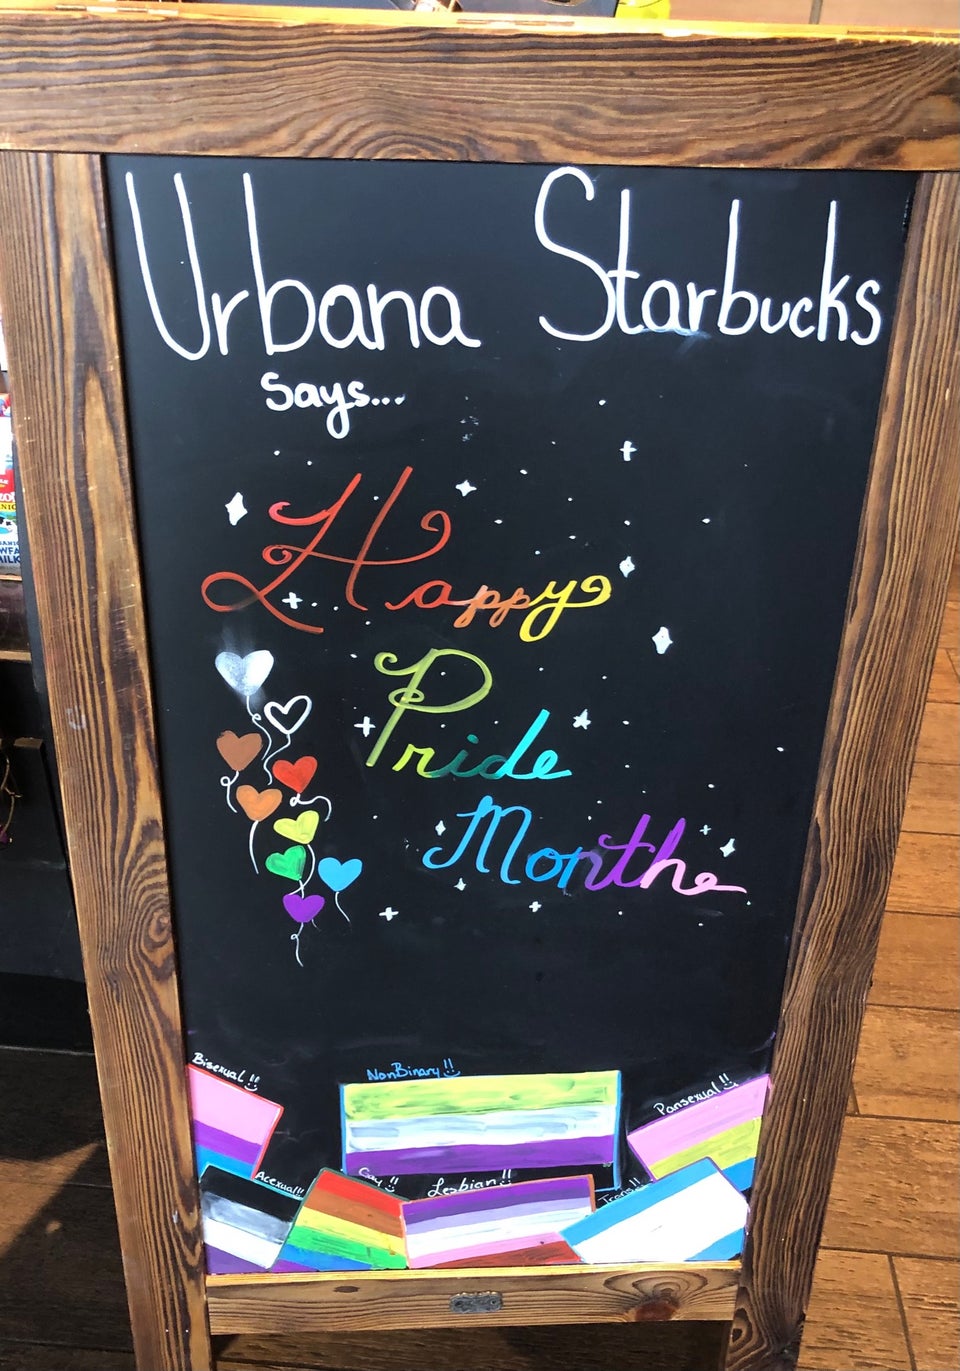 Urbana Starbucks
says...
Happy
Pride
Month
Bisexual!!
NonBinary!!
Pansexual!!
Acexual!!
Gay!!
Lesbian!!
Trans!!